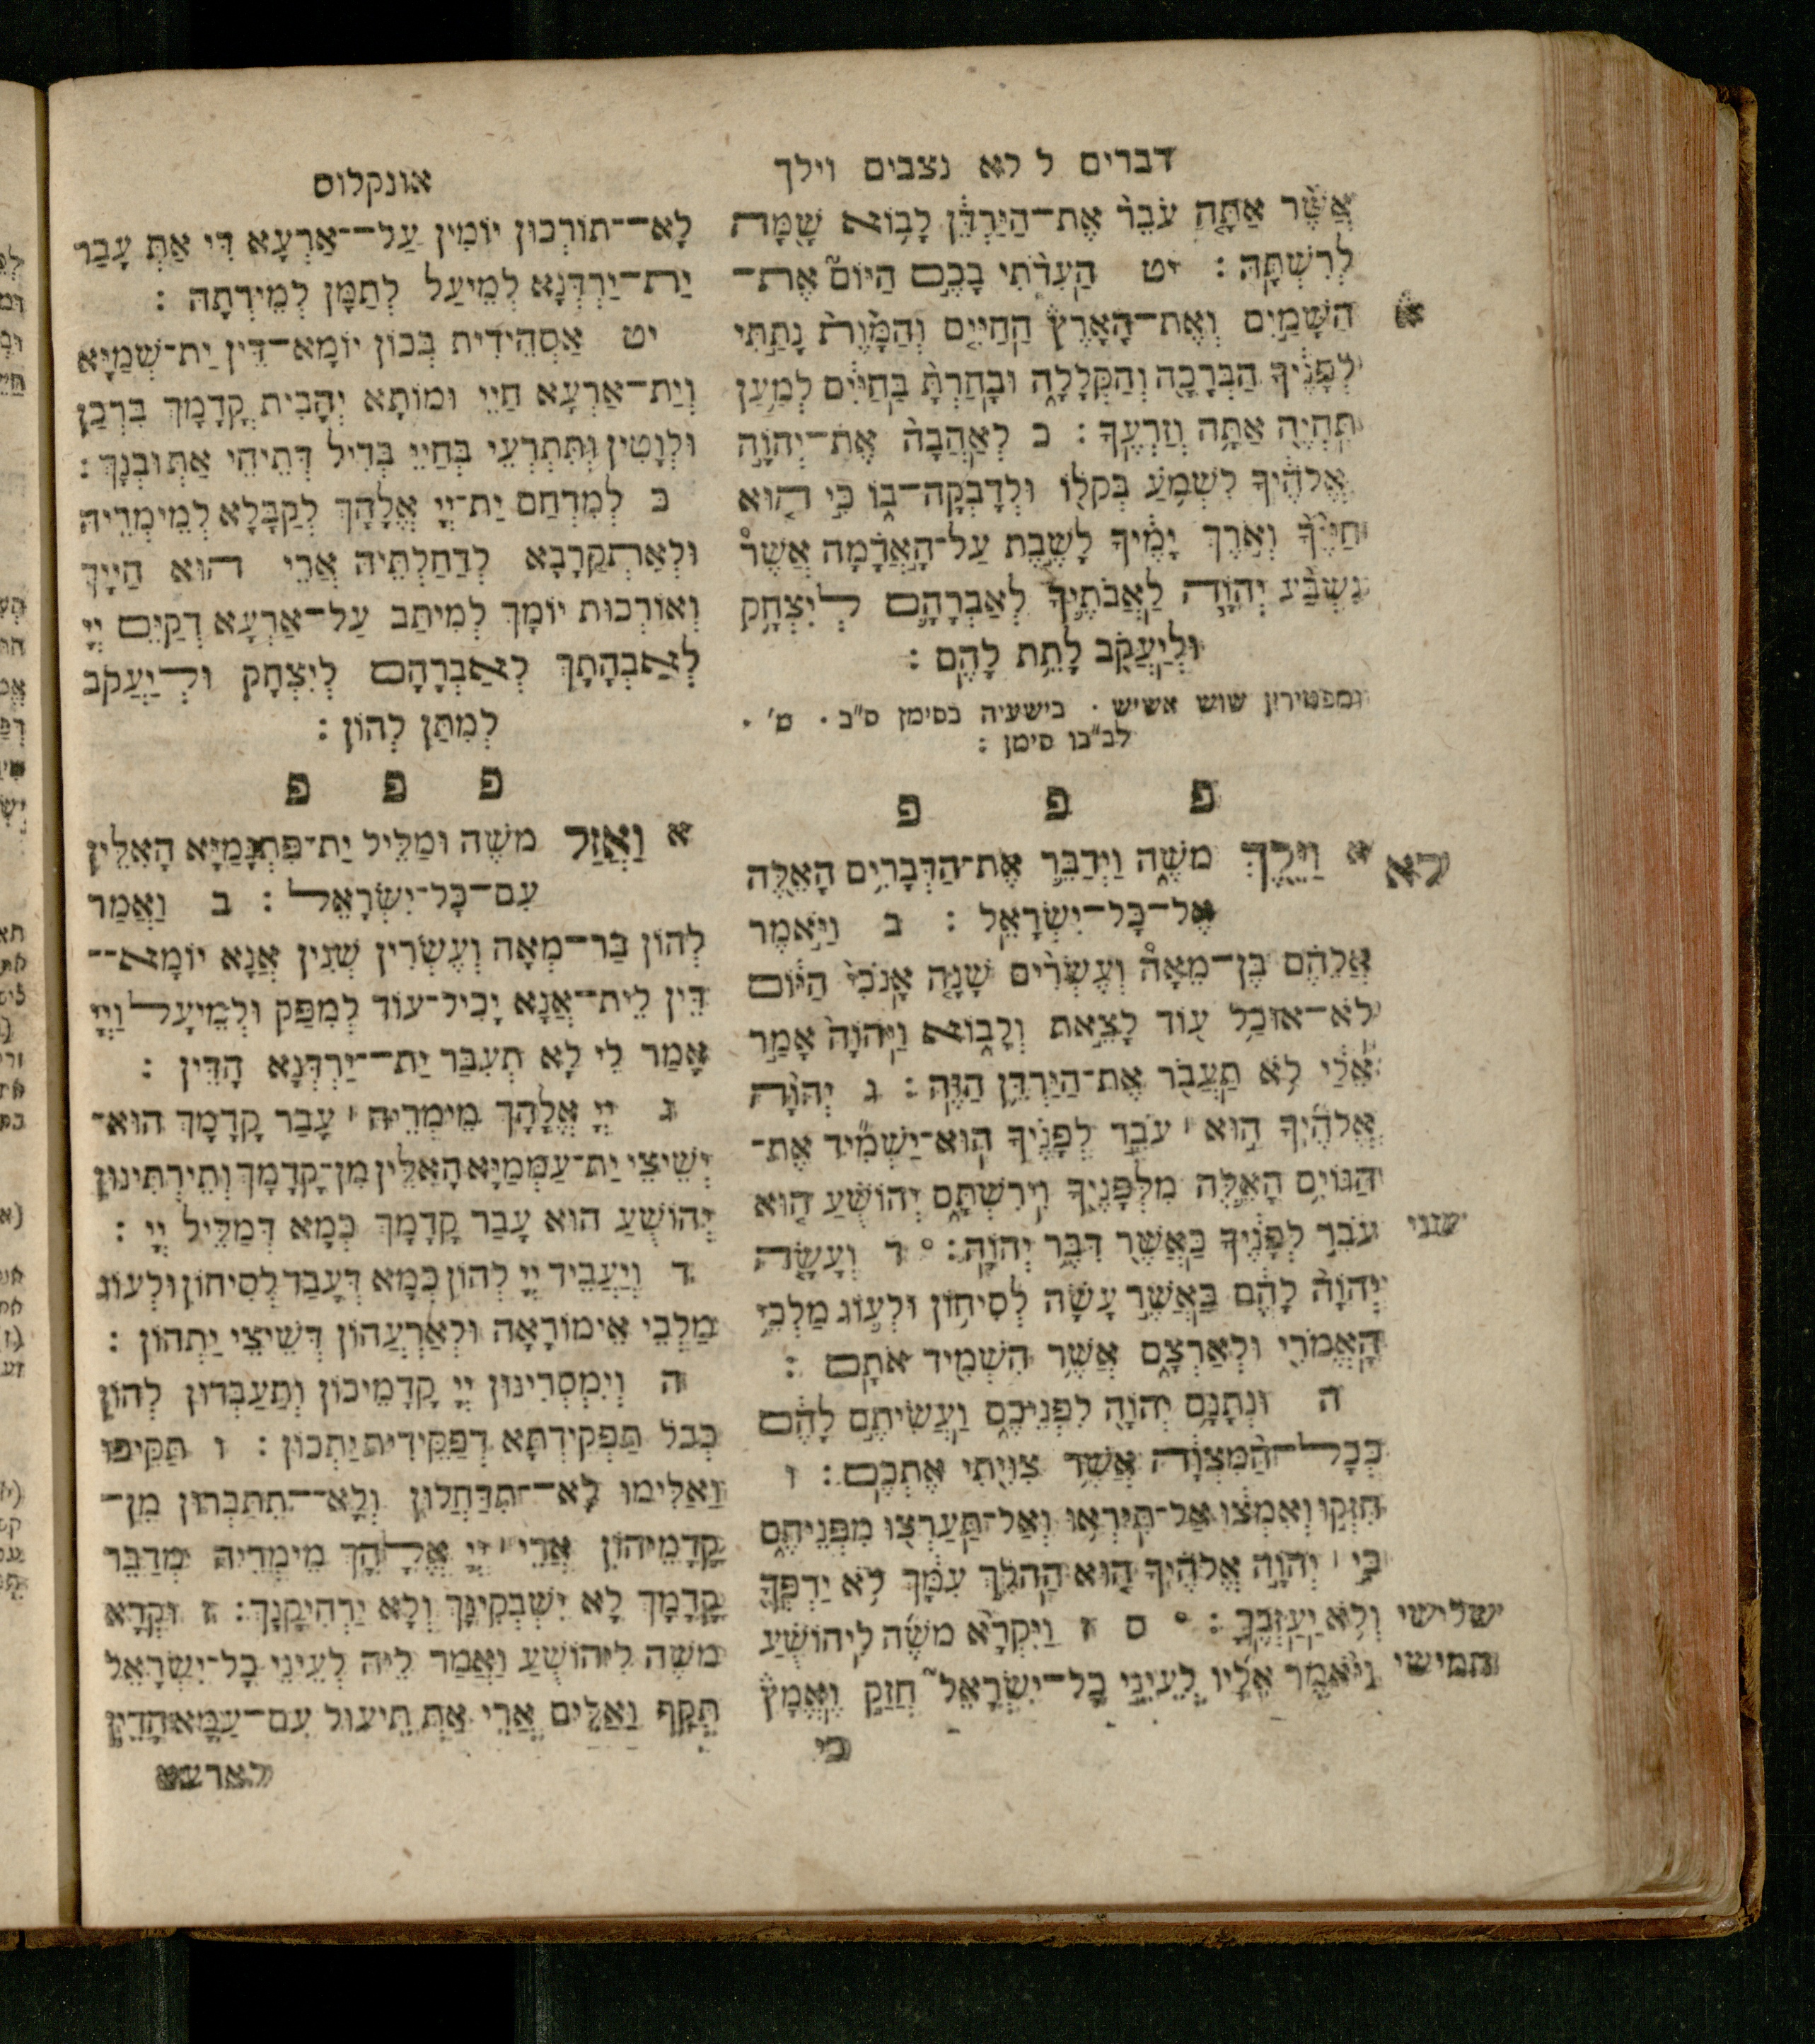 דברים ל לא נצבים וילך
אֲשֶׁר אַתָּה עֹבֵר אֶת־הַיַּרְדֵּן לָבוֹא שָׁמָּה
לְרִשְׁתָּהּ: יט הַעִדֹתִי בָכֶם הַיּוֹם אֶת־
א
הַשָּׁמַיִם וְאֶת־הָאָרֶץ הַחַיִּים וְהַמָּוֶת נָתַתִּי
לְפָנֶיךָ הַבְּרָכָה וְהַקְּלָלָה וּבָחַרְתָּ בַּחַיִּים לְמַעַן
תִּחְיֶה אַתָּה וְזַרְעֶךָ: כ לְאַהֲבָה אֶת־יְהֹוָה
אֱלֹהֶיךָ לִשְׁמֹעַ בְּקֹלוֹ וּלְדָבְקָה־בוֹ כִּי הוּא
חַיֶּיךָ וְאֹרֶךְ יָמֶיךָ לָשֶׁבֶת עַל־הָאֲדָמָה אֲשֶׁר
נִשְׁבַּע יְהֹוָה לַאֲבֹתֶיךָ לְאַבְרָהָם לְיִצְחָק
וּלְיַעֲקֹב לָתֵת לָהֶם:
ומפטירין שוש אשיש · בישעיה בסימן ס״ב · מ׳ ·
לב״בו סימן:
פ פ פ
לא
א וַיֵּלֶךְ מֹשֶׁה וַיְדַבֵּר אֶת־הַדְּבָרִים הָאֵלֶּה
אֶל־כָּל־יִשְׂרָאֵל: ב וַיֹּאמֶר
אֲלֵהֶם בֶּן־מֵאָה וְעֶשְׂרִים שָׁנָה אָנֹכִי הַיּוֹם
לֹא־אוּכַל עוֹד לָצֵאת וְלָבוֹא וַיהֹוָה אָמַר
אֵלַי לֹא תַעֲבֹר אֶת־הַיַּרְדֵּן הַזֶּה: ג יְהֹוָה
אֱלֹהֶיךָ הוּא עֹבֵר לְפָנֶיךָ הוּא־יַשְׁמִיד אֶת־
הַגּוֹיִם הָאֵלֶּה מִלְּפָנֶיךָ וִירִשְׁתָּם יְהוֹשֻׁעַ הוּא
שני
עֹבֵר לְפָנֶיךָ כַּאֲשֶׁר דִּבֶּר יְהֹוָה:° ד וְעָשָׂה
יְהֹוָה לָהֶם כַּאֲשֶׁר עָשָׂה לְסִיחוֹן וּלְעוֹג מַלְכֵי
הָאֱמֹרִי וּלְאַרְצָם אֲשֶׁר הִשְׁמִיד אֹתָם:
ה וּנְתָנָם יְהֹוָה לִפְנֵיכֶם וַעֲשִׂיתֶם לָהֶם
כְּכָל־הַמִּצְוָה אֲשֶׁר צִוִּיתִי אֶתְכֶם: ו
חִזְקוּ וְאִמְצוּ אַל־תִּירְאוּ וְאַל־תַּעַרְצוּ מִפְּנֵיהֶם
כִּי יְהֹוָה אֱלֹהֶיךָ הוּא הַהֹלֵךְ עִמָּךְ לֹא יַרְפְּךָ
שלישי
וְלֹא יַעַזְבֶךָּ:° ס ז וַיִּקְרָא מֹשֶׁה לִיהוֹשֻׁעַ
חמישי
וַיֹּאמֶר אֵלָיו לְעֵינֵי כָל־יִשְׂרָאֵל חֲזַק וֶאֱמָץ
כי
אונקלוס
לָא־תוֹרְכוּן יוֹמִין עַל־אַרְעָא דִּי אַתְּ עָבַר
יַת־יַרְדְּנָא לְמֵיעַל לְתַמָּן לְמֵירְתָהּ:
יט אַסְהֵידִית בְּכוֹן יוֹמָא־דֵין יַת־שְׁמַיָּא
וְיַת־אַרְעָא חַיֵּי וּמוֹתָא יְהָבִית קֳדָמָךְ בִּרְכָן
וּלְוָטִין וְתִתְרְעֵי בְּחַיֵּי בְּדִיל דְּתֵיחֵי אַתְּ וּבְנָךְ:
כ לְמִרְחַם יַת־יְיָ אֱלָהָךְ לְקַבָּלָא לְמֵימְרֵיהּ
וּלְאִתְקַרָבָא לְדַחַלְתֵּיהּ אֲרֵי הוּא חַיָּיךְ
וְאוֹרְכוּת יוֹמָךְ לְמִיתַב עַל־אַרְעָא דְקַיֵּים יְיָ
לַאֲבָהָתָךְ לְאַבְרָהָם לְיִצְחָק וּלְיַעֲקֹב
לְמִתַּן לְהוֹן:
פ פ פ
א וַאֲזַל מֹשֶׁה וּמַלִּיל יַת־פִּתְגָּמַיָּא הָאִלֵּין
עִם־כָּל־יִשְׂרָאֵל: ב וַאֲמַר
לְהוֹן בַּר־מְאָה וְעֶשְׂרִין שְׁנִין אֲנָא יוֹמָא־
דֵּין לֵית־אֲנָא יָכִיל־עוֹד לְמִפַּק וּלְמֵיעַל וַיְיָ
אֲמַר לִי לָא תְעִבַּר יַת־יַרְדְּנָא הָדֵין:
ג יְיָ אֱלָהָךְ מֵימְרֵיהּ עָבַר קֳדָמָךְ הוּא־
יְשֵׁיצֵי יַת־עַמְמַיָּא הָאִלֵּין מִן־קֳדָמָךְ וְתֵירְתִינוּן
יְהוֹשֻׁעַ הוּא עָבַר קֳדָמָךְ כְּמָא דְּמַלִּיל יְיָ:
ד וְיַעֲבֵיד יְיָ לְהוֹן כְּמָא דְּעָבַד לְסִיחוֹן וּלְעוֹג
מַלְכֵי אֵימוֹרָאָה וּלְאַרְעֲהוֹן דְּשֵׁיצֵי יַתְהוֹן:
ה וְיִמְסְרִינוּן יְיָ קֳדָמֵיכוֹן וְתַעַבְּדוּן לְהוֹן
כְּכָל תַּפְקֵידְתָּא דְפַקֵּידִית יַתְכוֹן: ו תַּקִּיפוּ
וְאַלִּימוּ לָא־תִדַּחֲלוּן וְלָא־תִתַּבְרוּן מִן־
קֳדָמֵיהוֹן אֲרֵי יְיָ אֱלָהָךְ מֵימְרֵיהּ מְדַבֵּר
קֳדָמָךְ לָא יִשְׁבְּקִינָּךְ וְלָא יַרְחִיקִנָּךְ: ז וּקְרָא
מֹשֶׁה לִיהוֹשֻׁעַ וַאֲמַר לֵיהּ לְעֵינֵי כָל־יִשְׂרָאֵל
תְּקֵף וְאַלִּים אֲרֵי אַתְּ תֵּיעוּל עִם־עַמָּא הָדֵין
לארעא